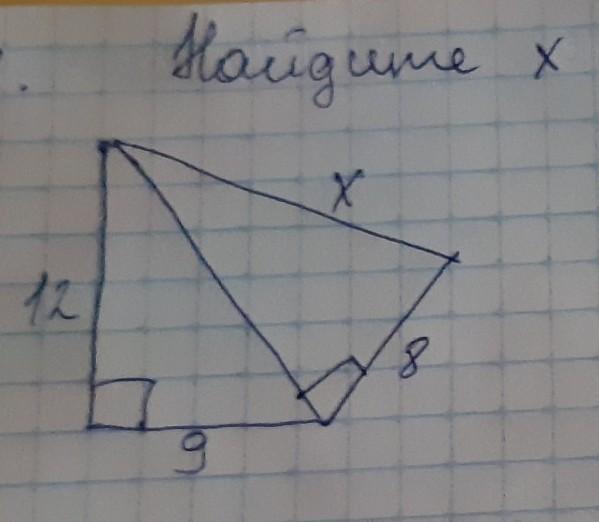 Найдите x
x
12
8
9